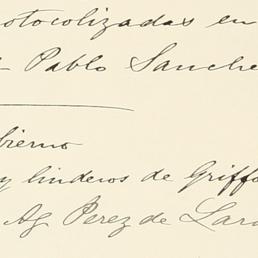 otocolizadas en
Pablo Sanche
bierno
y linderos de Griffo
Ag. Perez de Lara